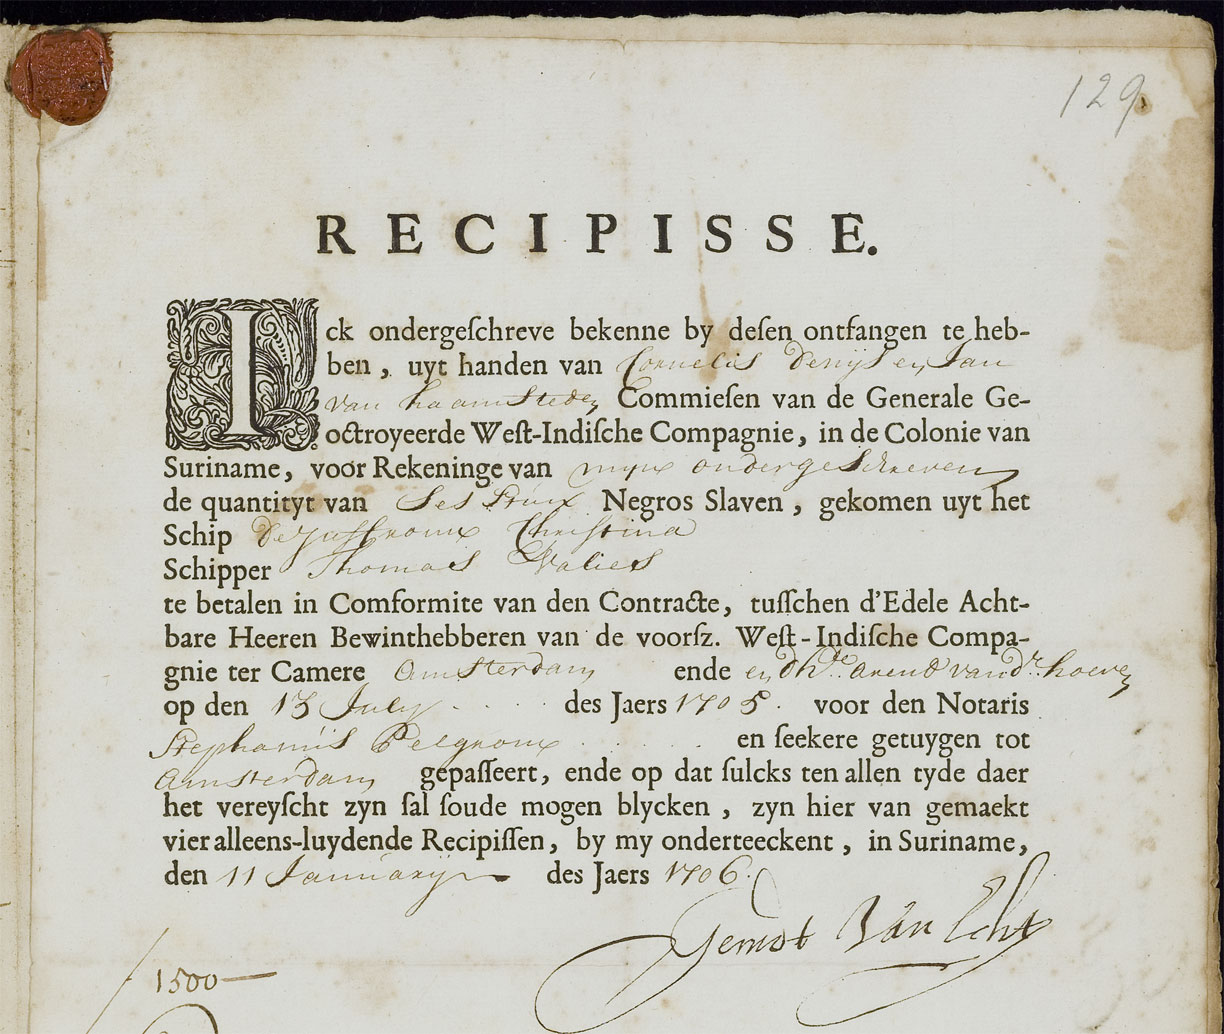 129
RECIPISSE.
Ick ondergeschreve bekenne by desen ontfangen te heb-
ben, uyt handen van Cornelis Denijs en Jan
van haamsteden Commiesen van de Generale Ge-
octroyeerde West-Indische Compagnie, in de Colonie van
Suriname, voor Rekeninge van myne ondergeschreven
de quantityt van Ses Stux Negros Slaven, gekomen uyt het
Schip De Juffrouw Christina
Schipper Thomas
te betalen in Comformite van den Contracte, tusschen d'Edele Acht-
bare Heeren Bewinthebberen van de voorsz. West-Indische Compa-
gnie ter Camere Amsterdam ende en dhr. arend vandr. hoeven
op den 13 July des Jaers 1705. voor den Notaris
Stephanus Pelgrom en seekere getuygen tot
Amsterdam gepasseert, ende op dat sulcks ten allen tyde daer
het vereyscht zyn sal soude mogen blycken, zyn hier van gemaekt
vier alleens-luydende Recipissen, by my onderteeckent, in Suriname,
den 11 Januarij des Jaers 1706.
Van Echt
1500